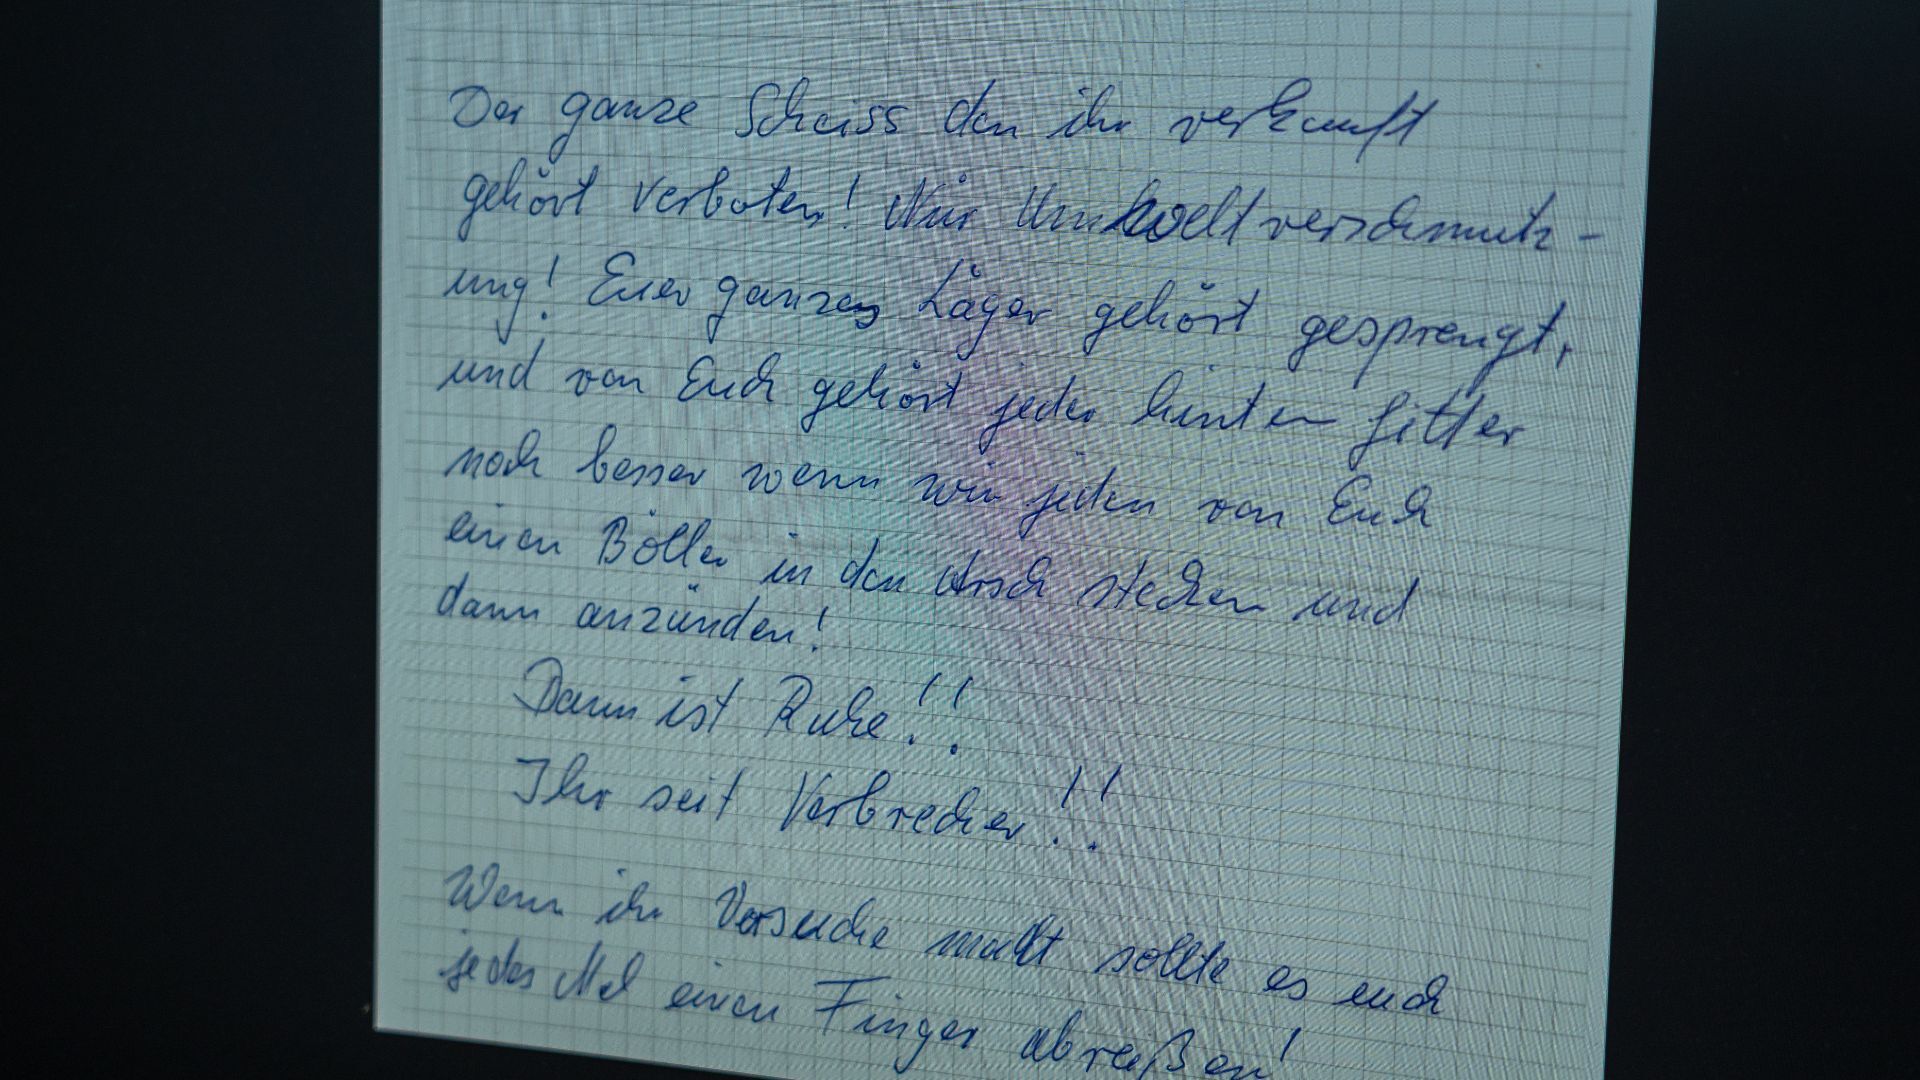 Der ganze Scheiss den ihr verkauft
gehört Verboten! Nur Umweltverschmutz-
ung! Euer ganzes Läger gehört gesprengt,
und von Euch gehört jeder hinter Gitter
noch besser wenn wir jeden von Euch
einen Böller in den Arsch stecken und
dann anzünden!
Dann ist Ruhe!!
Ihr seit Verbrecher!!
Wenn ihr Versuche macht sollte es euch
jedes Mal einen Finger abreißen!